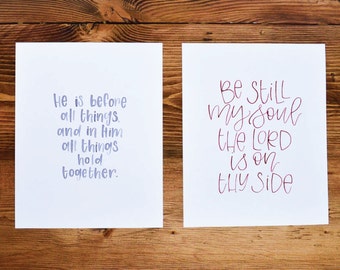 He is before
all things,
and in Him
all things
hold
together.
Be Still
my Soul
the LORD
is on
thy Side